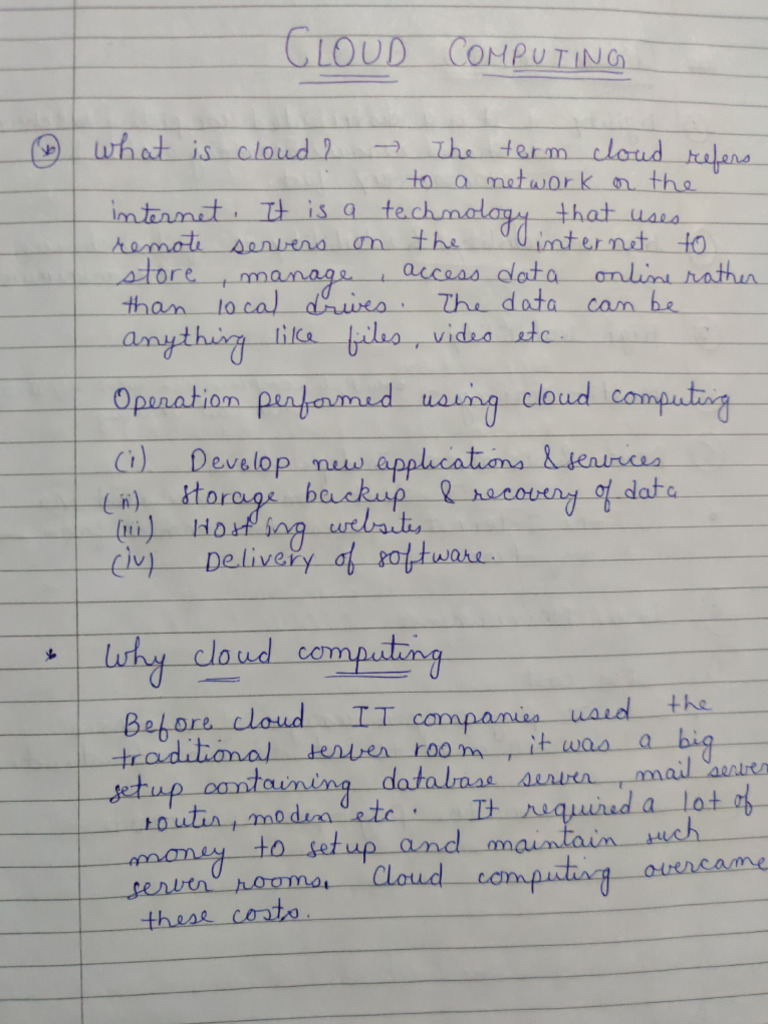 CLOUD COMPUTING
What is cloud? → The term cloud refers
to a network or the
internet. It is a technology that uses
remote servers on the internet to
store, manage, access data online rather
than local drives. The data can be
anything like files, video etc.
Operation performed using cloud computing
(i) Develop new applications & services
(ii) Storage backup & recovery of data
(iii) Hosting websites
(iv) Delivery of software.
* Why cloud computing
Before cloud IT companies used the
traditional server room, it was a big
setup containing database server, mail server
router, modem etc. It required a lot of
money to setup and maintain such
server rooms. Cloud computing overcame
these costs.